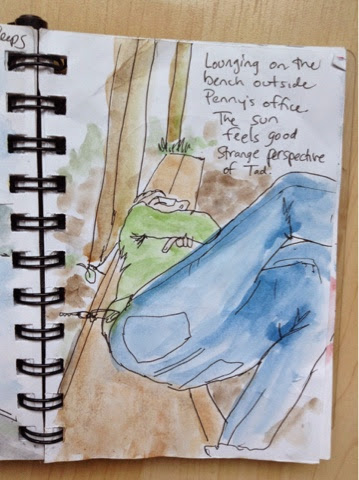 eeps
Lounging on the
bench outside
Penny's office
The sun
feels good
Strange perspective
of Tad.